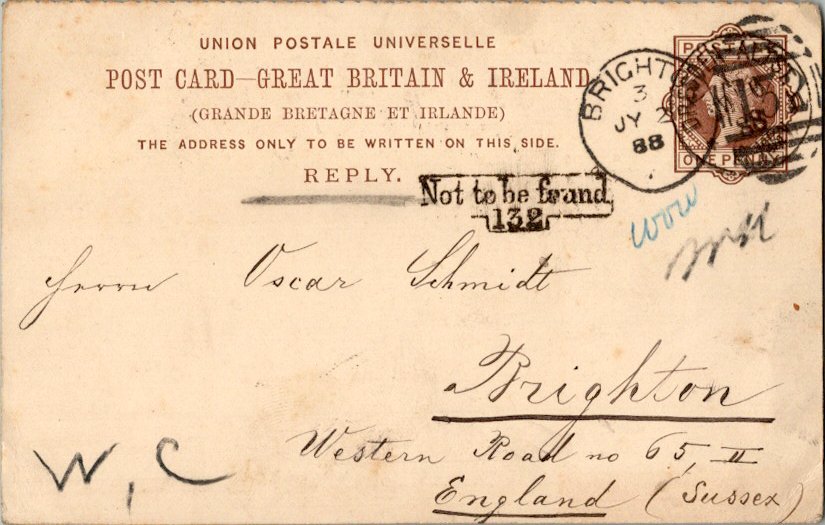 UNION POSTALE UNIVERSELLE
POST CARD—GREAT BRITAIN & IRELAND
(GRANDE BRETAGNE ET IRLANDE)
THE ADDRESS ONLY TO BE WRITTEN ON THIS SIDE.
REPLY.
BRIGHTON
3
JY 2
88
POSTAGE
ONE PENNY
Not to be found
132
Herrn Oscar Schmidt
Brighton
Western Road no 65, II
England (Sussex)
W, C